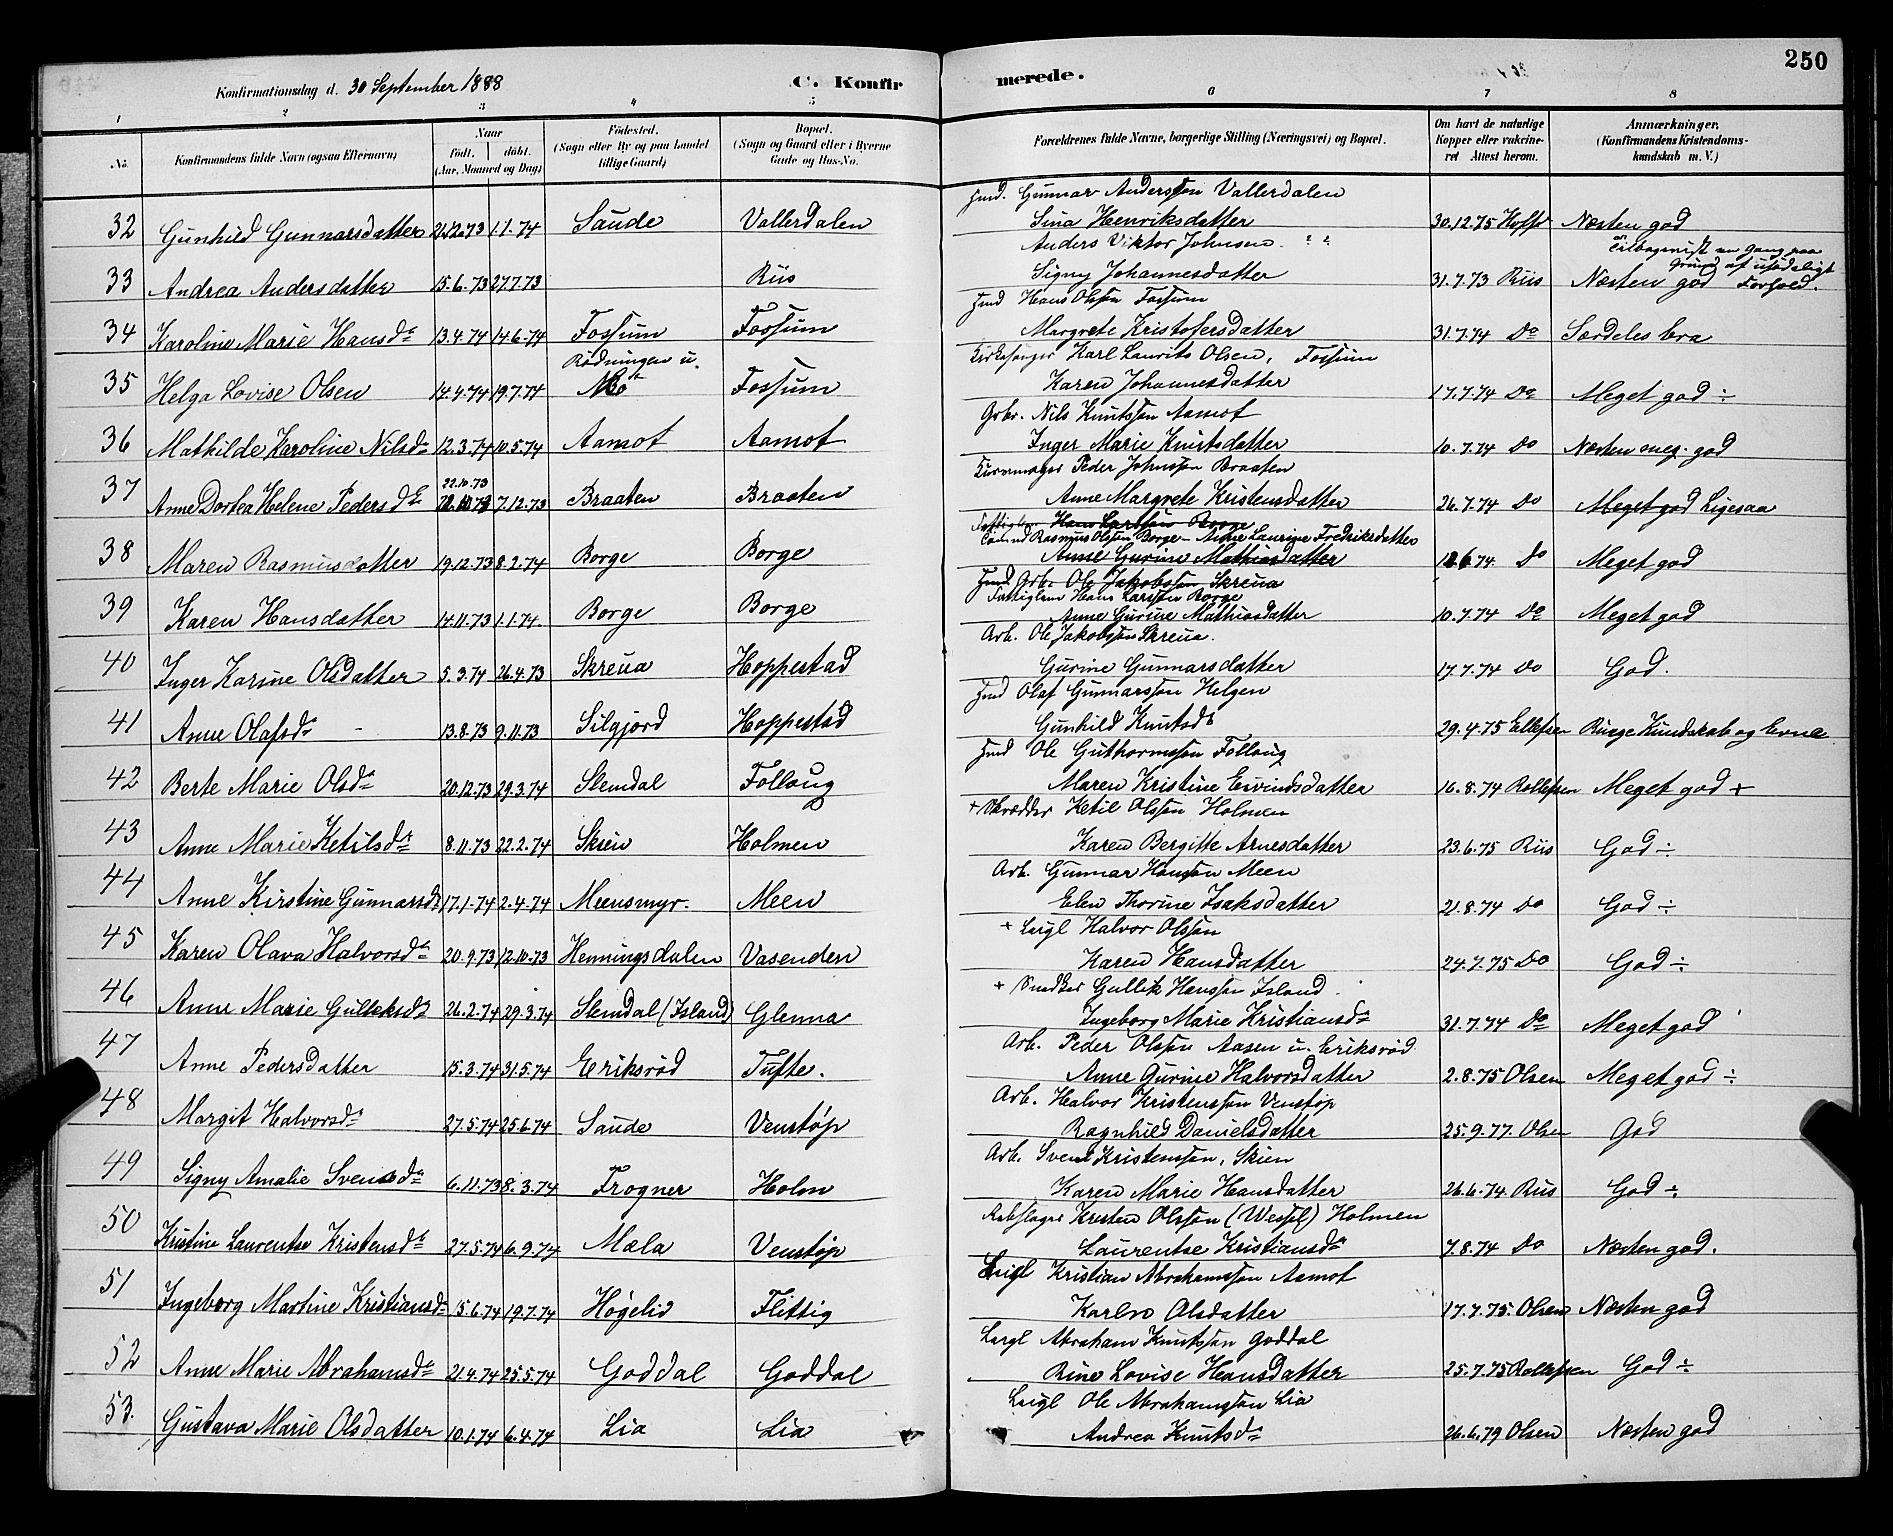 250
Konfirmationsdag d. 30 September 1888
C. Konfirmerede.
1 2 3 4 5 6 7 8
No. Konfirmandens fulde Navn (ogsaa Efternavn) Naar født. døbt. (Aar, Maaned og Dag) Fødested. (Sogn eller By og paa Landet tillige Gaard) Bopæl. (Sogn og Gaard eller i Byerne Gade og Hus-No. Forældrenes fulde Navne, borgerlige Stilling (Næringsvei) og Bopæl. Om havt de naturlige Kopper eller vakcineret Attest herom. Anmærkninger. (Konfirmandens Kristendomskundskab m. V.)
Hmd. Gunnar Anderssøn Vallerdalen
32 Gunhild Gunnarsdatter 21.12.73 1.1.74 Saude Vallerdalen Sina Henriksdatter 30.12.75 Næsten god
Anders Viktor Johnsen " "
33 Andrea Andersdatter 15.6.73 27.7.73 Riis Signy Johannesdatter 31.7.73 Riis Næsten god
en Gang paa Grund af usædeligt Forhold.
Hmd Hans Olssøn Fossum
34 Karoline Marie Hansdr 13.4.74 14.6.74 Fossum Fossum Margrete Kristofersdatter 31.7.74 Do Særdeles bra
Kirkesanger Karl Laurits Olsen, Fossum
35 Helga Lovise Olsen 14.4.74 19.7.74 Rødningen u. Mo Fossum Karen Johannesdatter 17.7.74 Do Meget god ÷
Grbr. Nils Knutssøn Aamot
36 Mathilde Karoline Nilsdr 12.3.74 10.5.74 Aamot Aamot Inger Marie Knutsdatter 10.7.74 Do Næsten meg. god
Peder Johnssøn Braaten
37 Anne Dortea Helene Pedersdtr 22.10.73 7.12.73 Braaten Braaten Anne Margrete Kristensdatter 26.7.74 Do Meget god Ligesaa
Fattiglem Hans Larssøn Borge
Rasmus Olsen Borge – Anne Laurine Fredriksdatter
38 Maren Rasmusdatter 19.12.73 8.2.74 Borge Borge Anne Gurine Mathiasdatter Do Meget god
Hmd Arb. Ole Jakobssøn Skreua
Fattiglem Hans Larssøn Borge
39 Karen Hansdatter 14.11.73 1.1.74. Borge Borge Anne Gurine Mathiasdatter 10.7.74 Do Meget god
Arb. Ole Jakobssøn Skreua.
40 Inger Karine Olsdatter 5.3.74 26.4.73 Skreua Hoppestad Gurine Gunnarsdatter 17.7.74 Do God.
Hmd Olaf Gunnarssøn Helgen
41 Anne Olafsdr 13.8.73 9.11.73 Silgjord Hoppestad Gunhild Knutsdr 29.4.75 Ellefsen Ringe Kundskab og Evne
Hmd Ole Guthormssøn Follaug
42 Berte Marie Olsdr 20.12.73 29.3.74 Slemdal Follaug Maren Kristine Eivindsdatter 16.8.74 Rollefsen Meget god +
+ Skrædder Ketil Olssøn Holmen
43 Anne Marie Ketilsdr 8.11.73 22.2.74 Skien Holmen Karen Bergitte Arnesdatter 23.6.75 Riis God ÷
Arb. Gunnar Hanssøn Meen
44 Anne Kirstine Gunnarsdr 17.1.74 2.4.74 Meensmyr. Meen Elen Thorine Isaksdatter 21.8.74 Do God ÷
+ Leigl Halvor Olssøn
45 Karen Olava Halvorsdr 20.9.73 12.10.73 Henningsdalen Vasenden Karen Hansdatter 24.7.75 Do God ÷
+ Snedker Gullik Hanssøn Island
46 Anne Marie Gulleksdr 26.2.74 29.3.74 Slemdal (Island) Glenna Ingeborg Marie Kristiansdr 31.7.74 Do Meget god
Arb. Peder Olssøn Aasen u. Eriksrød
47 Anne Pedersdatter 15.3.74 31.5.74 Eriksrød Tufte. Anne Gurine Halvorsdatter 2.8.75 Olsen Meget god ÷
Arb. Halvor Kristenssøn Venstøp
48 Margit Halvorsdr 27.5.74 25.6.74 Saude Venstøp Ragnhild Danielsdatter 25.9.77. Olsen God
Arb. Svend Kristenssøn, Skien
49 Signy Amalie Svensdr 6.11.73 8.3.74 Frogner Holm Karen Marie Hansdatter 26.6.74. Riis God ÷
Rebslager Kristen Olssøn (Wessel) Holmen
50 Kristine Laurentse Kristensdr 27.5.74 6.9.74 Mæla Venstøp Laurentse Kristiansdr 7.8.74 Do Næsten god.
Leigl Kristian Abrahamssøn Aamot
51 Ingeborg Martine Kristiansdr 15.6.74 19.7.74 Høgelid Flittig Karen Olsdatter 17.7.75. Olsen Næsten god
Leigl Abraham Knutssøn Goddal
52 Anne Marie Abrahamsdr 21.4.74 25.5.74 Goddal Goddal Rine Lovise Hansdatter 25.7.75 Rollefsen God ÷
Leigl Ole Abrahamssøn Lia
53. Gustava Marie Olsdatter 10.1.74 6.4.74 Lia Lia Andrea Knutsdr 26.6.79 Olsen Næsten god